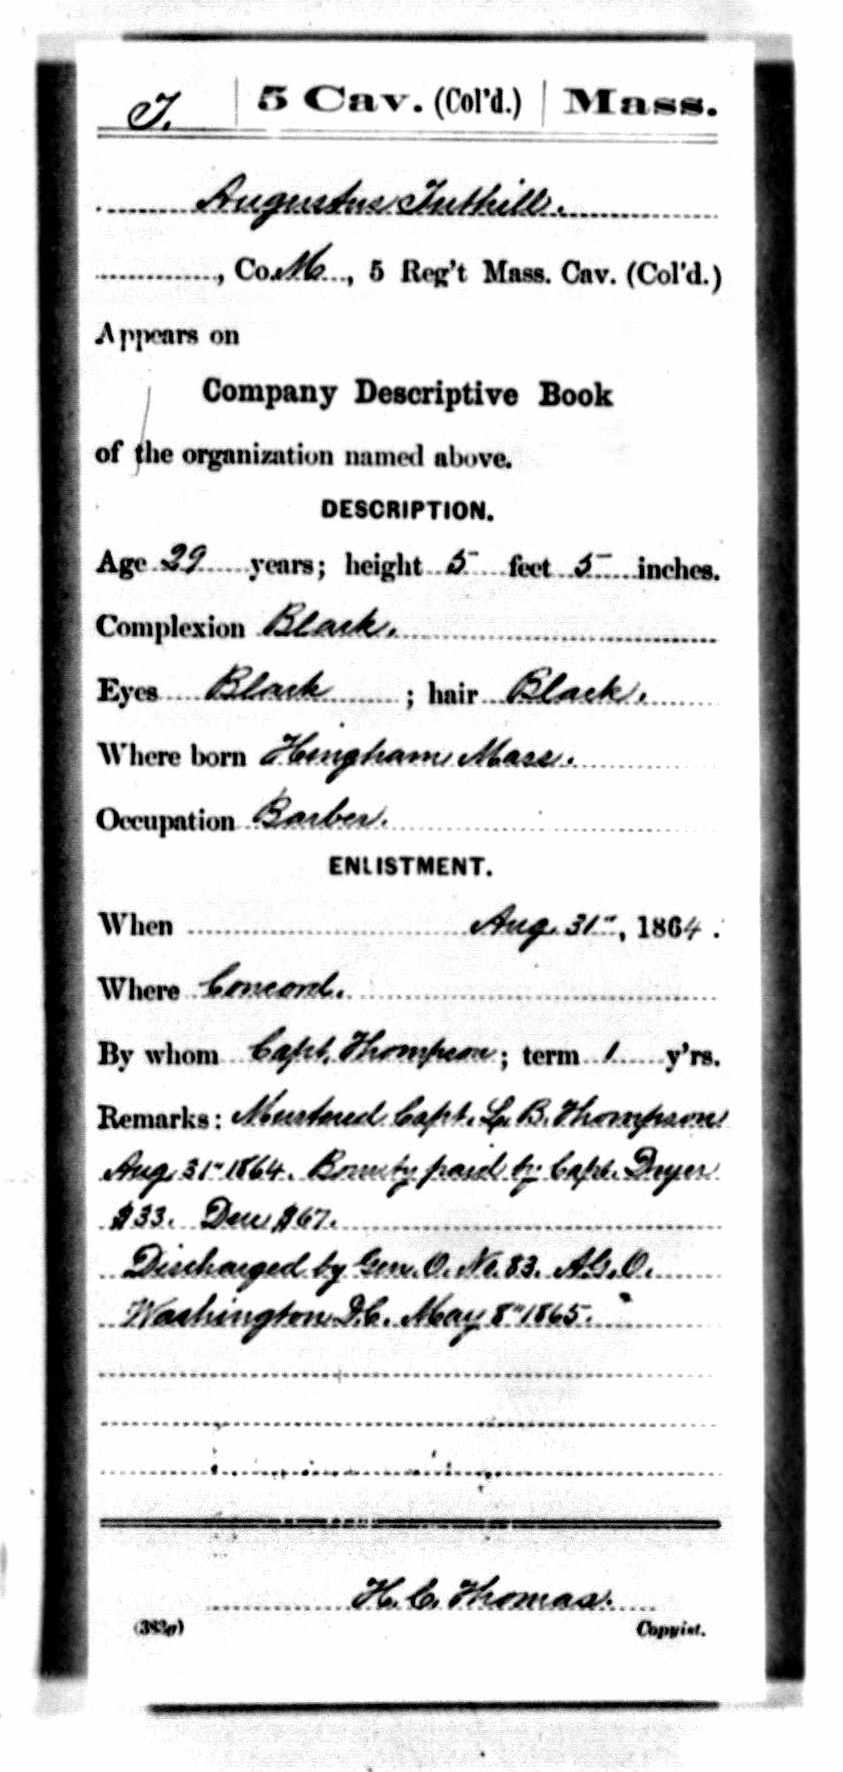 T. | 5 Cav. (Col'd.) | Mass.
Augustus Tuthill.
, Co. M, 5 Reg't Mass. Cav. (Col'd.)
Appears on
Company Descriptive Book
of the organization named above.
DESCRIPTION.
Age 29 years; height 5 feet 5 inches.
Complexion Black.
Eyes Black ; hair Black.
Where born Hingham Mass.
Occupation Barber.
ENLISTMENT.
When Aug. 31", 1864.
Where Concord.
By whom Capt. Thompson; term 1 y'rs.
Remarks: Mustered Capt. L. B. Thompson
Aug. 31" 1864. Bounty paid by Capt. Dryer
$33. Due $67.
Discharged by Gen. O. No. 83. A.G.O.
Washington D.C. May 8" 1865.
H. C. Thomas.
(383g) Copyist.